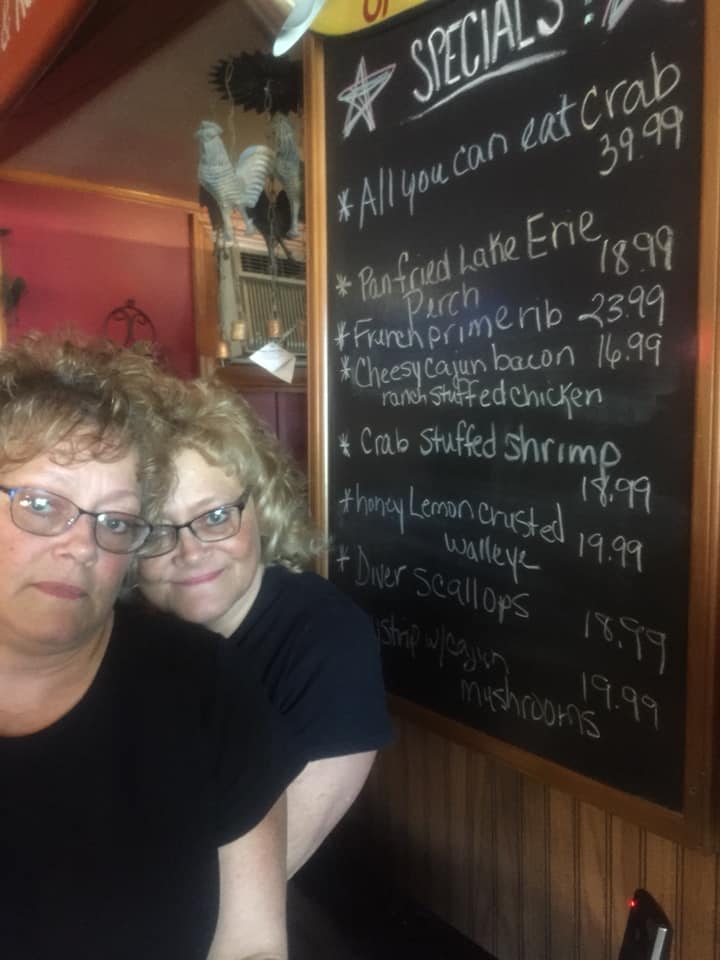 SPECIALS!
* All you can eat Crab
39.99
* Panfried Lake Erie
Perch 18.99
* French prime rib 23.99
* Cheesy cajun bacon 16.99
ranch stuffed chicken
* Crab Stuffed Shrimp
18.99
* honey Lemon crusted
walleye 19.99
* Diver scallops
18.99
strip w/cajun
mushrooms 19.99